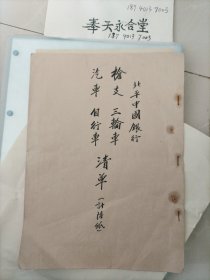 187 4013 7003
奉天永合堂
187 4013 7003
北平中國銀行
槍支 三輪車
汽車 自行車
清單（計陸紙）